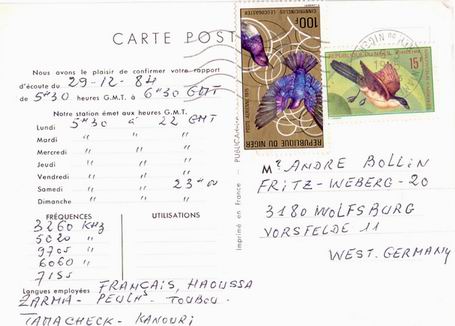 CARTE POST
Nous avons le plaisir de confirmer votre rapport
d'écoute du 29-12-84
de 5H30 heures G.M.T. à 6H30 GMT
Notre station émet aux heures G.M.T.
Lundi 5H30 à 22 GMT
Mardi " " "
Mercredi " " "
Jeudi " " "
Vendredi " " "
Samedi " " 23H00
Dimanche " " "
FRÉQUENCES UTILISATIONS
3260 KHz
5020 "
9705 "
6060 "
7155
Langues employées FRANÇAIS, HAOUSSA
ZARMA - PEULH - TOUBOU -
TAMACHECK - KANOURI
Imprimé en France - PUBLICA
100F
CINNYRICINCLUS LEUCOGASTER
POSTE AERIENNE 1975
REPUBLIQUE DU NIGER
15F
Mr ANDRE BOLLIN
FRITZ-WEBERG-20
3180 WOLFSBURG
VORSFELDE 11
WEST. GERMANY